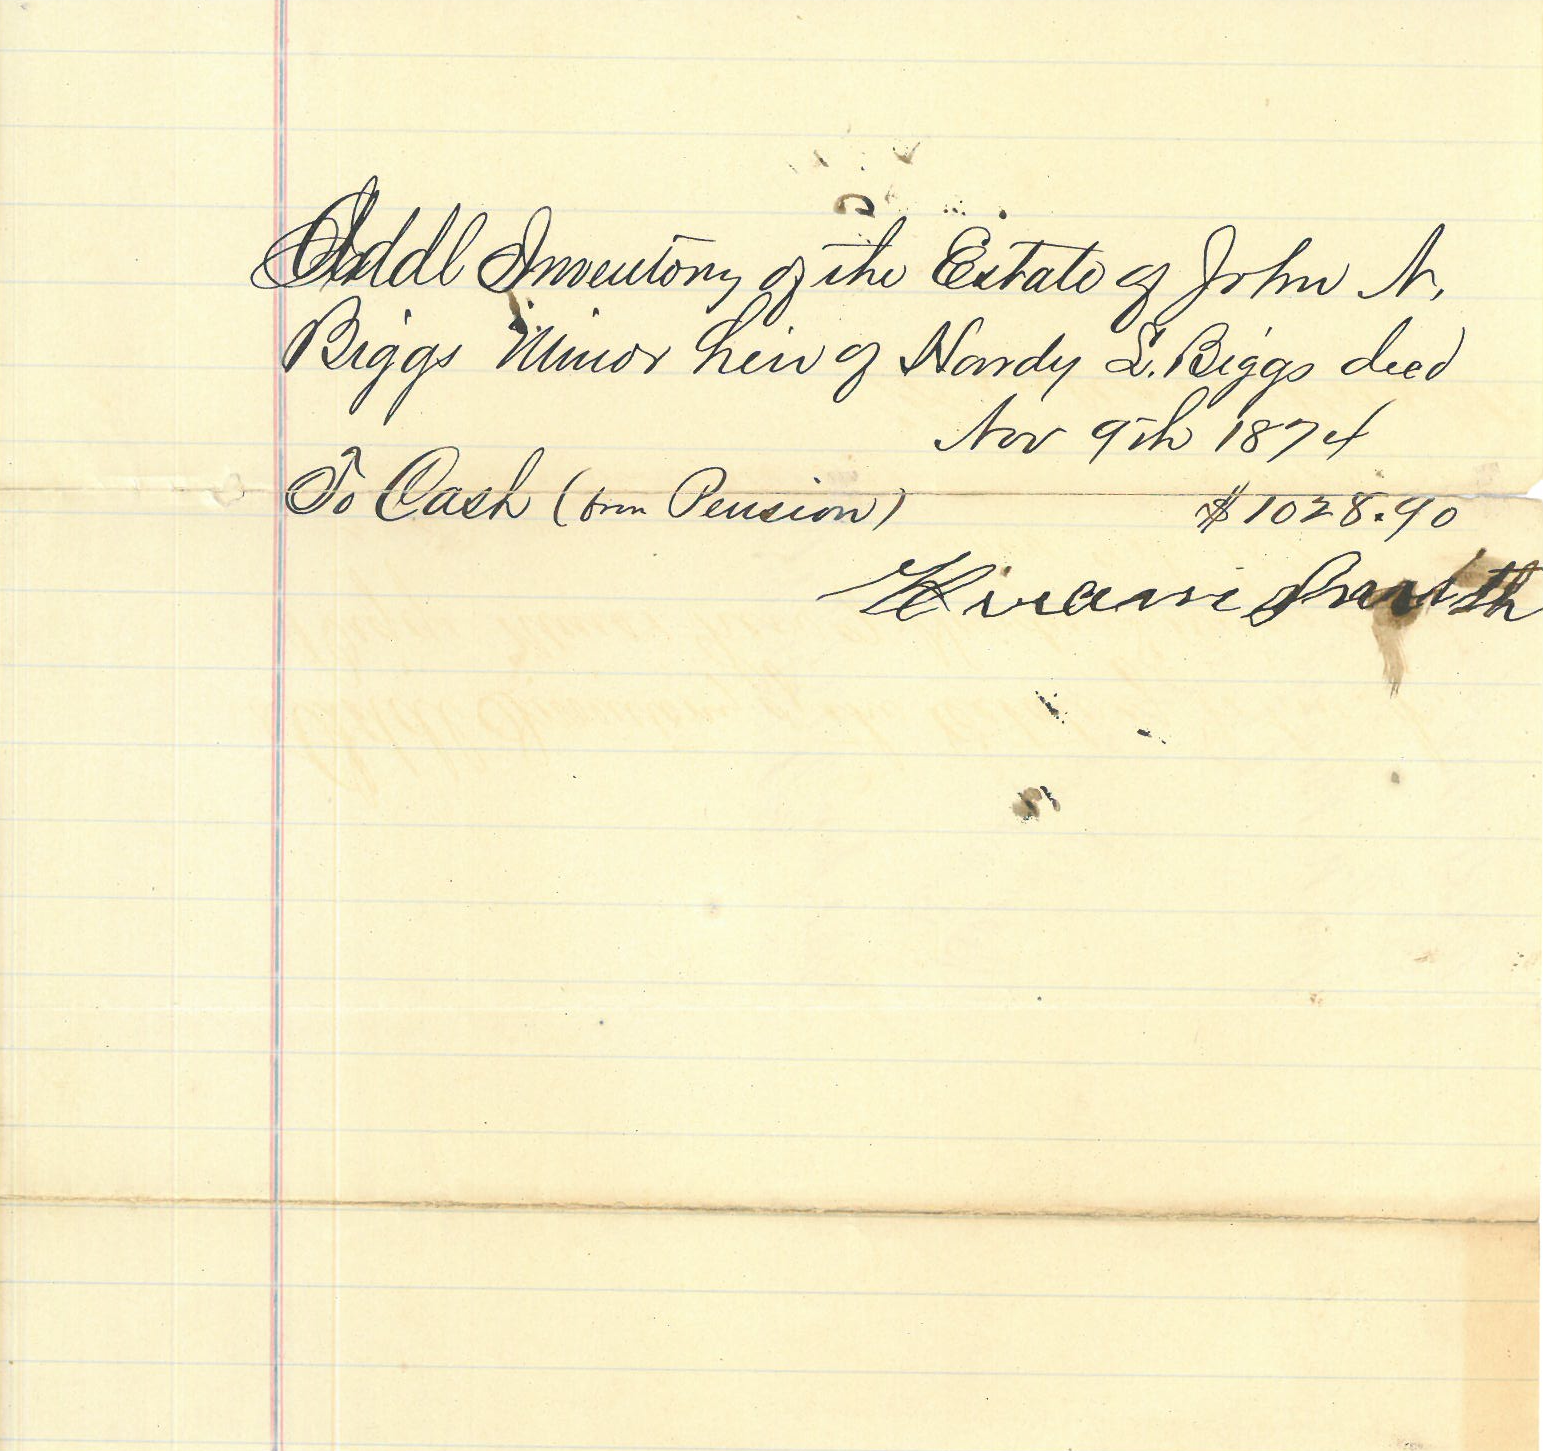 Addl Inventory of the Estate of John N.
Biggs Minor heir of Hardy L. Biggs decd
Nov 9th 1874
To Cash (from Pension) $1028.90
Hiram Smith